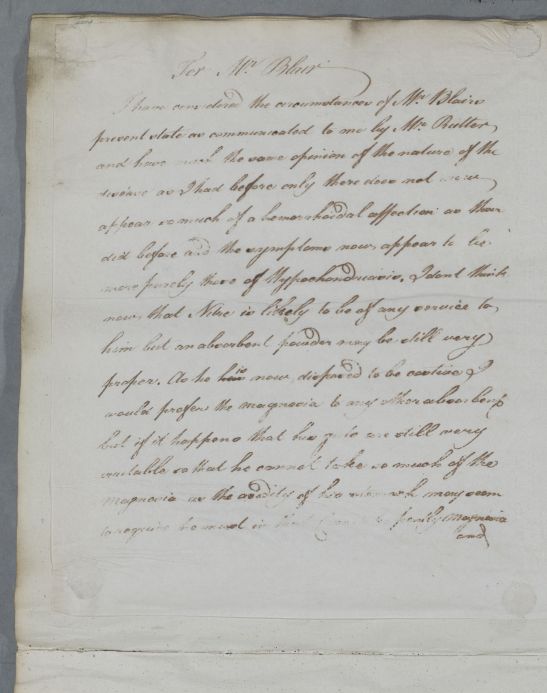 For Mr. Blair
I have considered the circumstances of Mr. Blairs
present state as communicated to me by Mr. Rutter,
and have much the same opinion of the nature of the
disease as I had before only there does not now
appear so much of a hemorrhoidal affection as there
did before and the symptoms now appear to be
more purely those of Hypochondriasis. I dont think
now that Nitre is likely to be of any service to
him but an absorbent powder may be still very
proper. As he is now disposed to be costive I
would prefer the magnesia to any other absorbent
but if it happens that his guts are still very
irritable so that he cannot take so much of the
magnesia as the acidity of his stomach may seem
to require he must in that partly magnesia
and